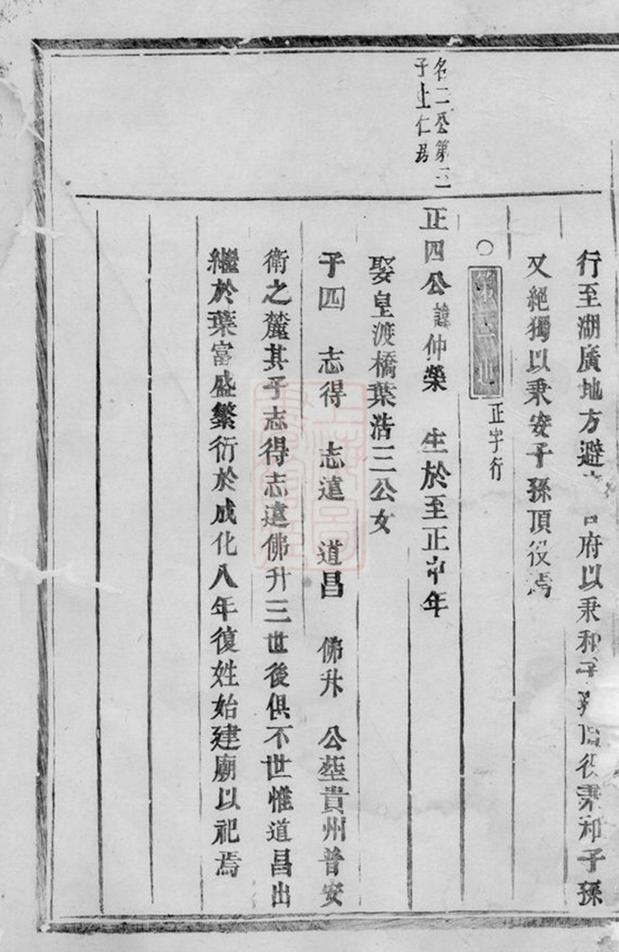 行至湖廣地方避 府以秉和子孫頂役秉和子孫
又絕獨以秉安子孫頂役焉
○ 正字行
名二公第三
子上仁爲
正四公諱仲榮 生於至正中年
娶皇渡橋葉浩三公女
子四 志得 志遠 道昌 佛升 公塟貴州普安
衛之麓其子志得志遠佛升三世後俱不世惟道昌出
繼於葉富盛繁衍於成化八年復姓始建廟以祀焉